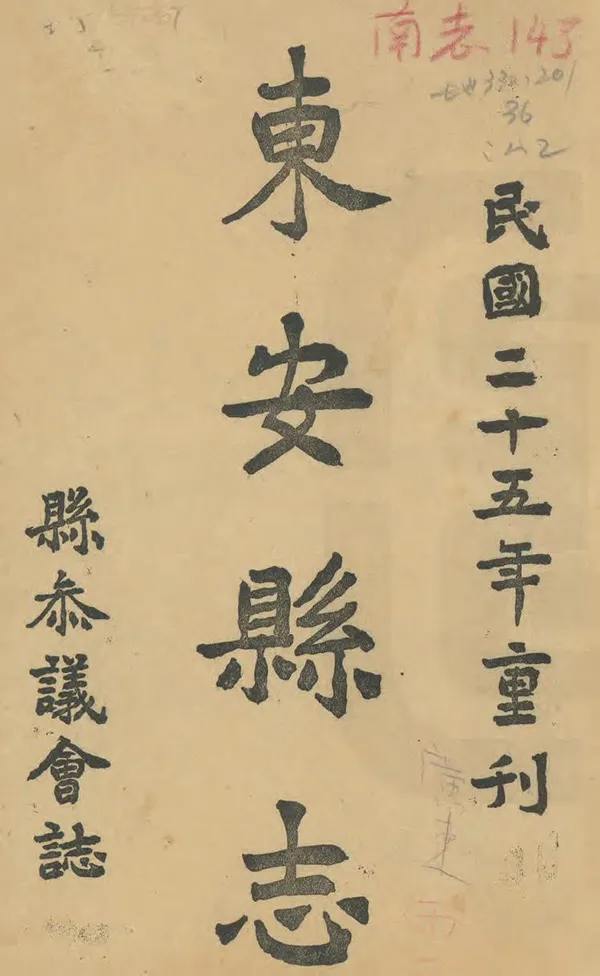 南志143
36
民國二十五年重刊
東安縣志
縣叅議會誌
廣東